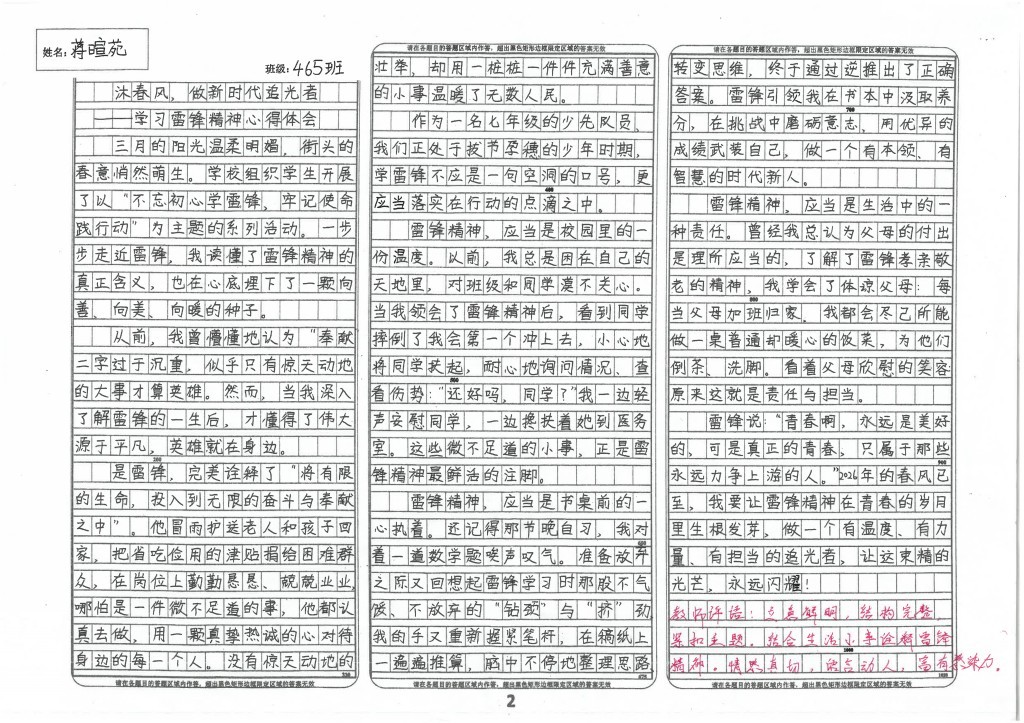 姓名：蒋暄苑
班级：465班
沐春风，做新时代追光者
——学习雷锋精神心得体会
三月的阳光温柔明媚，街头的
春意悄然萌生。学校组织学生开展
了以“不忘初心学雷锋，牢记使命
践行动”为主题的系列活动。一步
步走近雷锋，我读懂了雷锋精神的
真正含义，也在心底埋下了一颗向
善、向美、向暖的种子。
从前，我曾懵懂地认为“奉献
二字过于沉重，似乎只有惊天动地
的大事才算英雄。然而，当我深入
了解雷锋的一生后，才懂得了伟大
源于平凡，英雄就在身边。
200
是雷锋，完美诠释了“将有限
的生命，投入到无限的奋斗与奉献
之中”。他冒雨护送老人和孩子回
家，把省吃俭用的津贴捐给困难群
众，在岗位上勤勤恳恳、兢兢业业，
哪怕是一件微不足道的事，他都认
真去做，用一颗真挚热诚的心对待
身边的每一个人。没有惊天动地的
请在各题目的答题区域内作答，超出黑色矩形边框限定区域的答案无效
请在各题目的答题区域内作答，超出黑色矩形边框限定区域的答案无效
壮举，却用一桩桩一件件充满善意
的小事温暖了无数人民。
作为一名七年级的少先队员，
我们正处于拔节孕穗的少年时期，
学雷锋不应是一句空洞的口号，更
400
应当落实在行动的点滴之中。
雷锋精神，应当是校园里的一
份温度。以前，我总是困在自己的
天地里，对班级和同学漠不关心。
当我领会了雷锋精神后，看到同学
摔倒了我会第一个冲上去，小心地
将同学扶起，耐心地询问情况、查
500
看伤势：“还好吗，同学？”我一边轻
声安慰同学，一边搀扶着她到医务
室。这些微不足道的小事，正是雷
锋精神最鲜活的注脚。
雷锋精神，应当是书桌前的一
心执着。还记得那节晚自习，我对
600
着一道数学题唉声叹气。准备放弃
之际又回想起雷锋学习时那股不气
馁、不放弃的“钻颈”与“挤”劲，
我的手又重新握紧笔杆，在稿纸上
一遍遍推算，脑中不停地整理思路，
请在各题目的答题区域内作答，超出黑色矩形边框限定区域的答案无效
请在各题目的答题区域内作答，超出黑色矩形边框限定区域的答案无效
转变思维，终于通过逆推出了正确
答案。雷锋引领我在书本中汲取养
700
分，在挑战中磨砺意志，用优异的
成绩武装自己，做一个有本领、有
智慧的时代新人。
雷锋精神，应当是生活中的一
种责任。曾经我总认为父母的付出
是理所应当的，了解了雷锋孝亲敬
老的精神，我学会了体谅父母：每
800
当父母加班归家，我都会尽己所能
做一桌普通却暖心的饭菜，为他们
倒茶、洗脚。看着父母欣慰的笑容
原来这就是责任与担当。
雷锋说：“青春啊，永远是美好
的，可是真正的青春，只属于那些
900
永远力争上游的人。”2026年的春风已
至，我要让雷锋精神在青春的岁月
里生根发芽，做一个有温度、有力
量、有担当的追光者，让这束精的
光芒，永远闪耀！
教师评语：立意鲜明，结构完整，
紧扣主题。结合生活小事诠释雷锋
1000
精神。情感真切，语言动人，富有感染力。
请在各题目的答题区域内作答，超出黑色矩形边框限定区域的答案无效
2